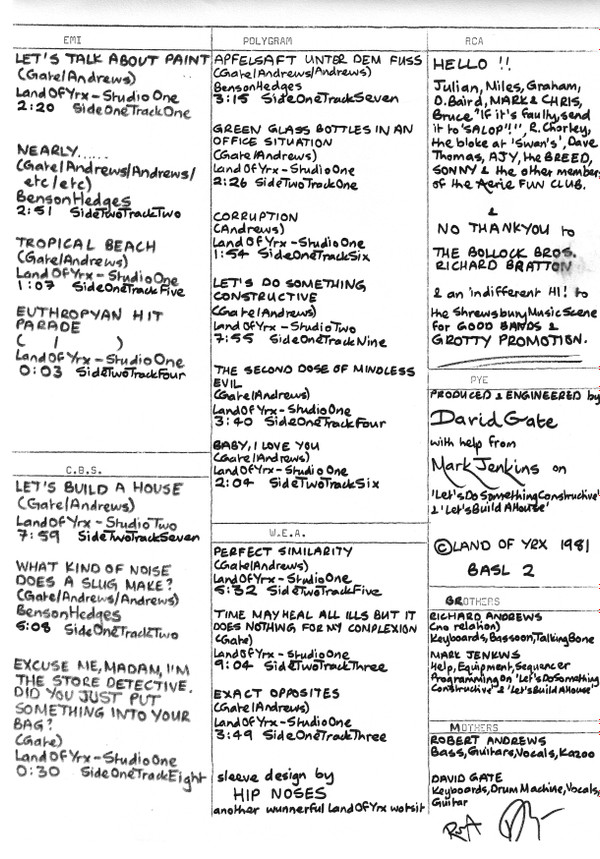 EMI
LET'S TALK ABOUT PAINT
(Gate/Andrews)
Land Of Yrx - Studio One
2:20 Side One Track One
NEARLY......
(Gate/Andrews/Andrews/
etc/etc)
Benson Hedges
2:51 Side Two Track Two
TROPICAL BEACH
(Gate/Andrews)
Land Of Yrx - Studio One
1:07 Side One Track Five
EUTHROPYAN HIT
PARADE
( / )
Land Of Yrx - Studio One
0:03 Side Two Track Four
C.B.S.
LET'S BUILD A HOUSE
(Gate/Andrews)
Land Of Yrx - Studio Two
7:59 Side Two Track Seven
WHAT KIND OF NOISE
DOES A SLUG MAKE?
(Gate/Andrews/Andrews)
Benson Hedges
5:08 Side One Track Two
EXCUSE ME, MADAM, I'M
THE STORE DETECTIVE.
DID YOU JUST PUT
SOMETHING INTO YOUR
BAG?
(Gate)
Land Of Yrx - Studio One
0:30 Side One Track Eight
POLYGRAM
APFELSAFT UNTER DEM FUSS
(Gate/Andrews/Andrews)
Benson Hedges
3:15 Side One Track Seven
GREEN GLASS BOTTLES IN AN
OFFICE SITUATION
(Gate/Andrews)
Land Of Yrx - Studio One
2:26 Side Two Track One
CORRUPTION
(Andrews)
Land Of Yrx - Studio One
1:54 Side One Track Six
LET'S DO SOMETHING
CONSTRUCTIVE
(Gate/Andrews)
Land Of Yrx - Studio Two
7:55 Side One Track Nine
THE SECOND DOSE OF MINDLESS
EVIL
(Gate/Andrews)
Land Of Yrx - Studio One
3:40 Side One Track Four
BABY, I LOVE YOU
(Gate/Andrews)
Land Of Yrx - Studio One
2:04 Side Two Track Six
W.E.A.
PERFECT SIMILARITY
(Gate/Andrews)
Land Of Yrx - Studio One
5:32 Side Two Track Five
TIME MAY HEAL ALL ILLS BUT IT
DOES NOTHING FOR MY COMPLEXION
(Gate)
Land Of Yrx - Studio One
9:04 Side Two Track Three
EXACT OPPOSITES
(Gate/Andrews)
Land Of Yrx - Studio One
3:49 Side One Track Three
sleeve design by
HIP NOSES
another wunnerful Land Of Yrx wotsit
RCA
HELLO !!
Julian, Miles, Graham,
D.Baird, MARK & CHRIS,
Bruce "If it's faulty, send
it to 'SALOP'!", R.Chorley,
the bloke at 'Swan's', Dave
Thomas, AJY, the BREED,
SONNY & the other members
of the Aerie FUN CLUB.
&
NO THANKYOU to
THE BOLLOCK BROS.
RICHARD BRATTON
& an 'indifferent HI! to
the Shrewsbury Music Scene
for GOOD BANDS &
GROTTY PROMOTION.
PYE
PRODUCED & ENGINEERED by
David Gate
with help from
Mark Jenkins on
'Let's Do Something Constructive'
& 'Let's Build A House'
© LAND OF YRX 1981
BASL 2
BROTHERS
RICHARD ANDREWS
(no relation)
Keyboards, Bassoon, Talking Bone
MARK JENKINS
Help, Equipment, Sequencer
Programming on 'Let's Do Something
Constructive' & 'Let's Build A House'
MOTHERS
ROBERT ANDREWS
Bass, Guitars, Vocals, Kazoo
DAVID GATE
Keyboards, Drum Machine, Vocals,
Guitar